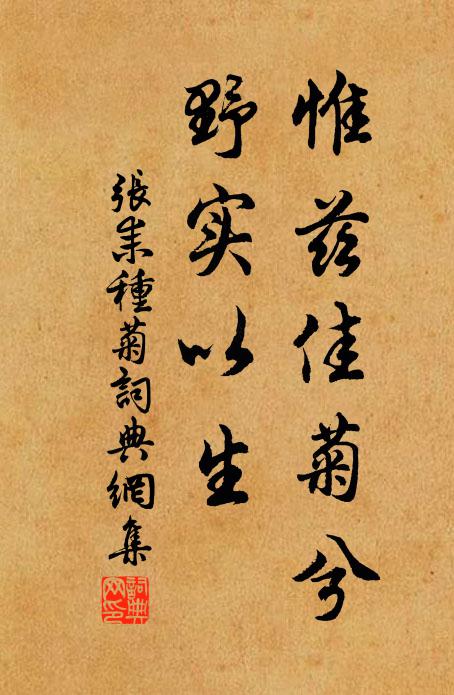 惟茲佳菊兮
野实以生
張耒種菊詞典網集
詞典网印